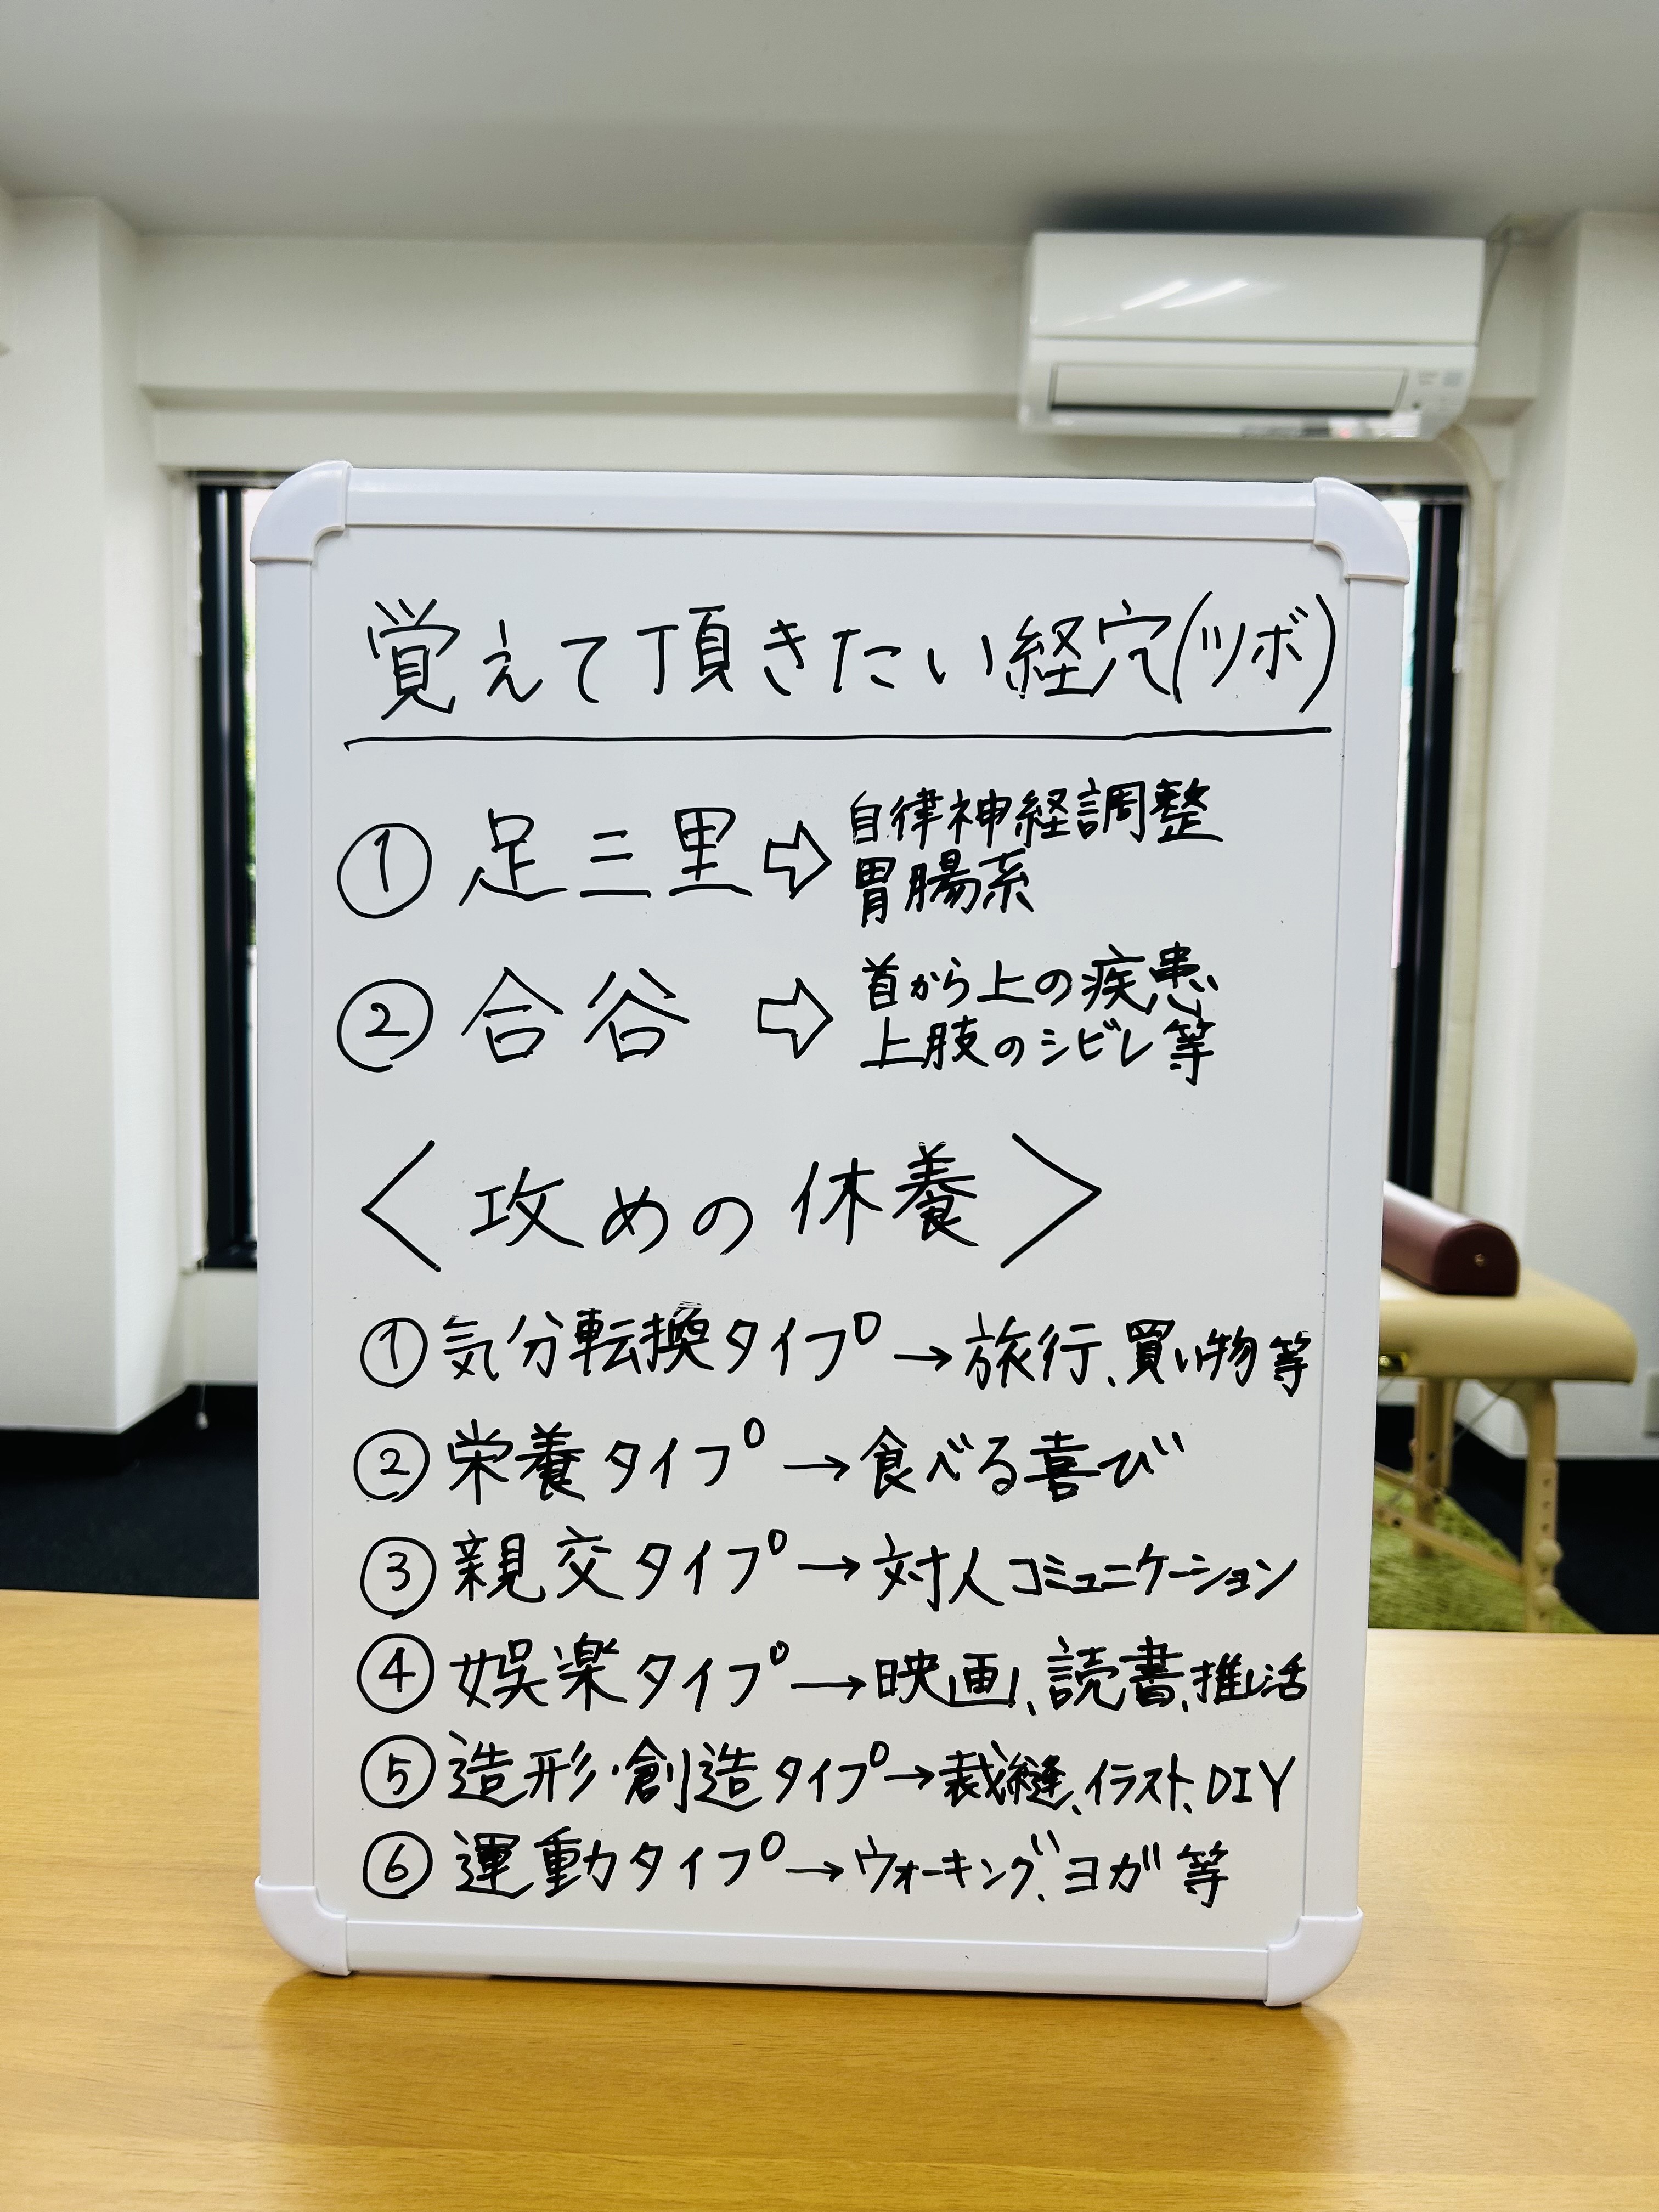 覚えて頂きたい経穴(ツボ)
① 足三里 ⇨ 自律神経調整
胃腸系
② 合谷 ⇨ 首から上の疾患
上肢のシビレ等
〈攻めの休養〉
①気分転換タイプ→旅行、買い物等
②栄養タイプ→食べる喜び
③親交タイプ→対人コミュニケーション
④娯楽タイプ→映画、読書、推し活
⑤造形・創造タイプ→裁縫、イラスト、DIY
⑥運動タイプ→ウォーキング、ヨガ等